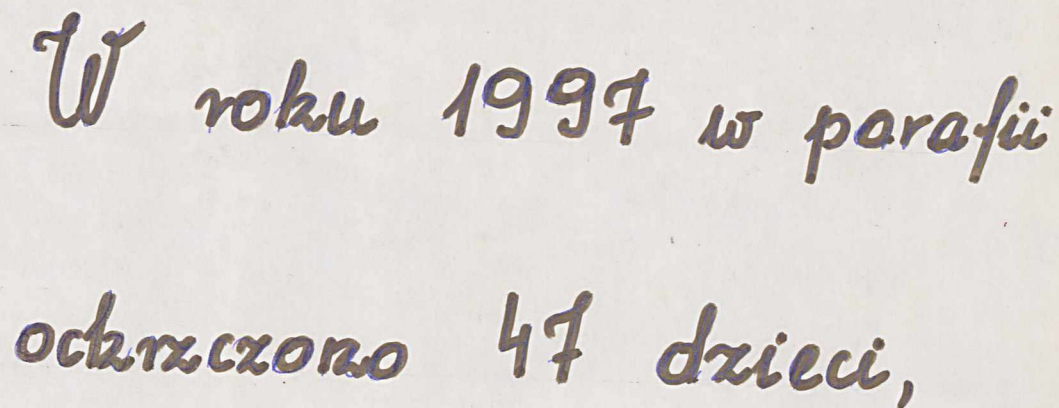 W roku 1997 w parafii
ochrzczono 47 dzieci,